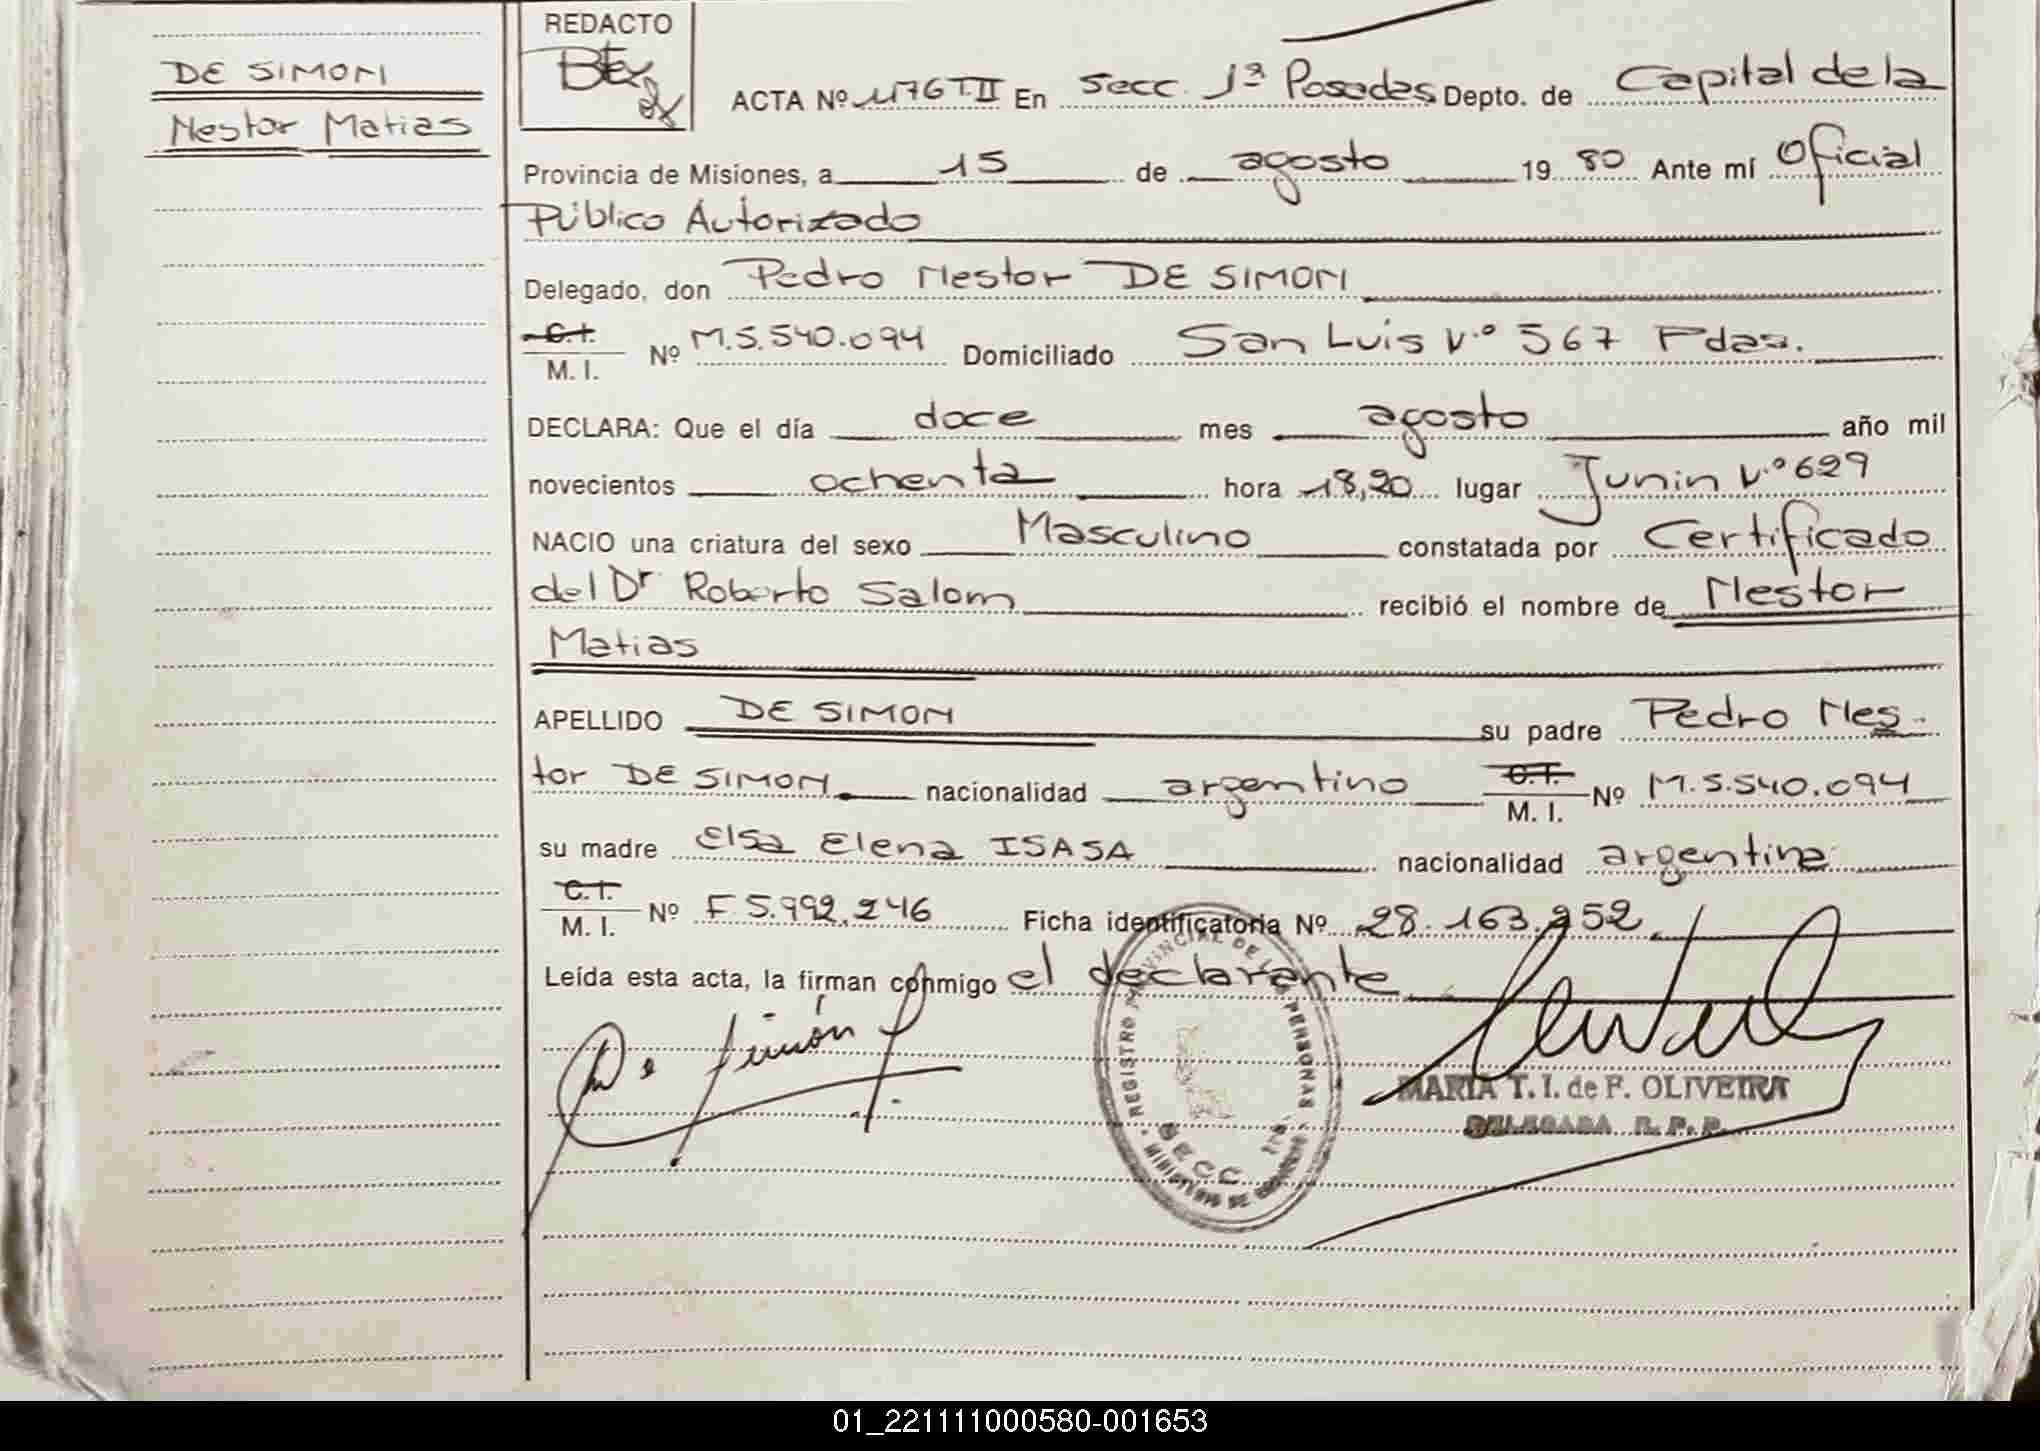 DE SIMON
Nestor Matias
REDACTO
ACTA Nº 1176 T.II En Secc. 1ª Posadas Depto. de Capital de la
Provincia de Misiones, a 15 de agosto 19 80 Ante mí Oficial
Público Autorizado
Delegado, don Pedro Nestor DE SIMON
C.I.
M. I. Nº M.5.540.094 Domiciliado San Luis Nº 567 Pdas.
DECLARA: Que el día doce mes agosto año mil
novecientos ochenta hora 18,20 lugar Junin Nº 629
NACIO una criatura del sexo Masculino constatada por Certificado
del Dr Roberto Salom recibió el nombre de Nestor
Matias
APELLIDO DE SIMON su padre Pedro Nes-
tor DE SIMON nacionalidad argentino C.I. M. I. Nº M.5.540.094
su madre Elsa Elena ISASA nacionalidad argentina
C.I.
M. I. Nº F 5.992.246 Ficha identificatoria Nº 28.163.252
Leída esta acta, la firman conmigo el declarante
De Simón
REGISTRO PROVINCIAL DE LAS PERSONAS
SECC. 1ra.
MINISTERIO DE GOBIERNO
MARIA T. I. de F. OLIVEIRA
DELEGADA R. P. P.
01_221111000580-001653